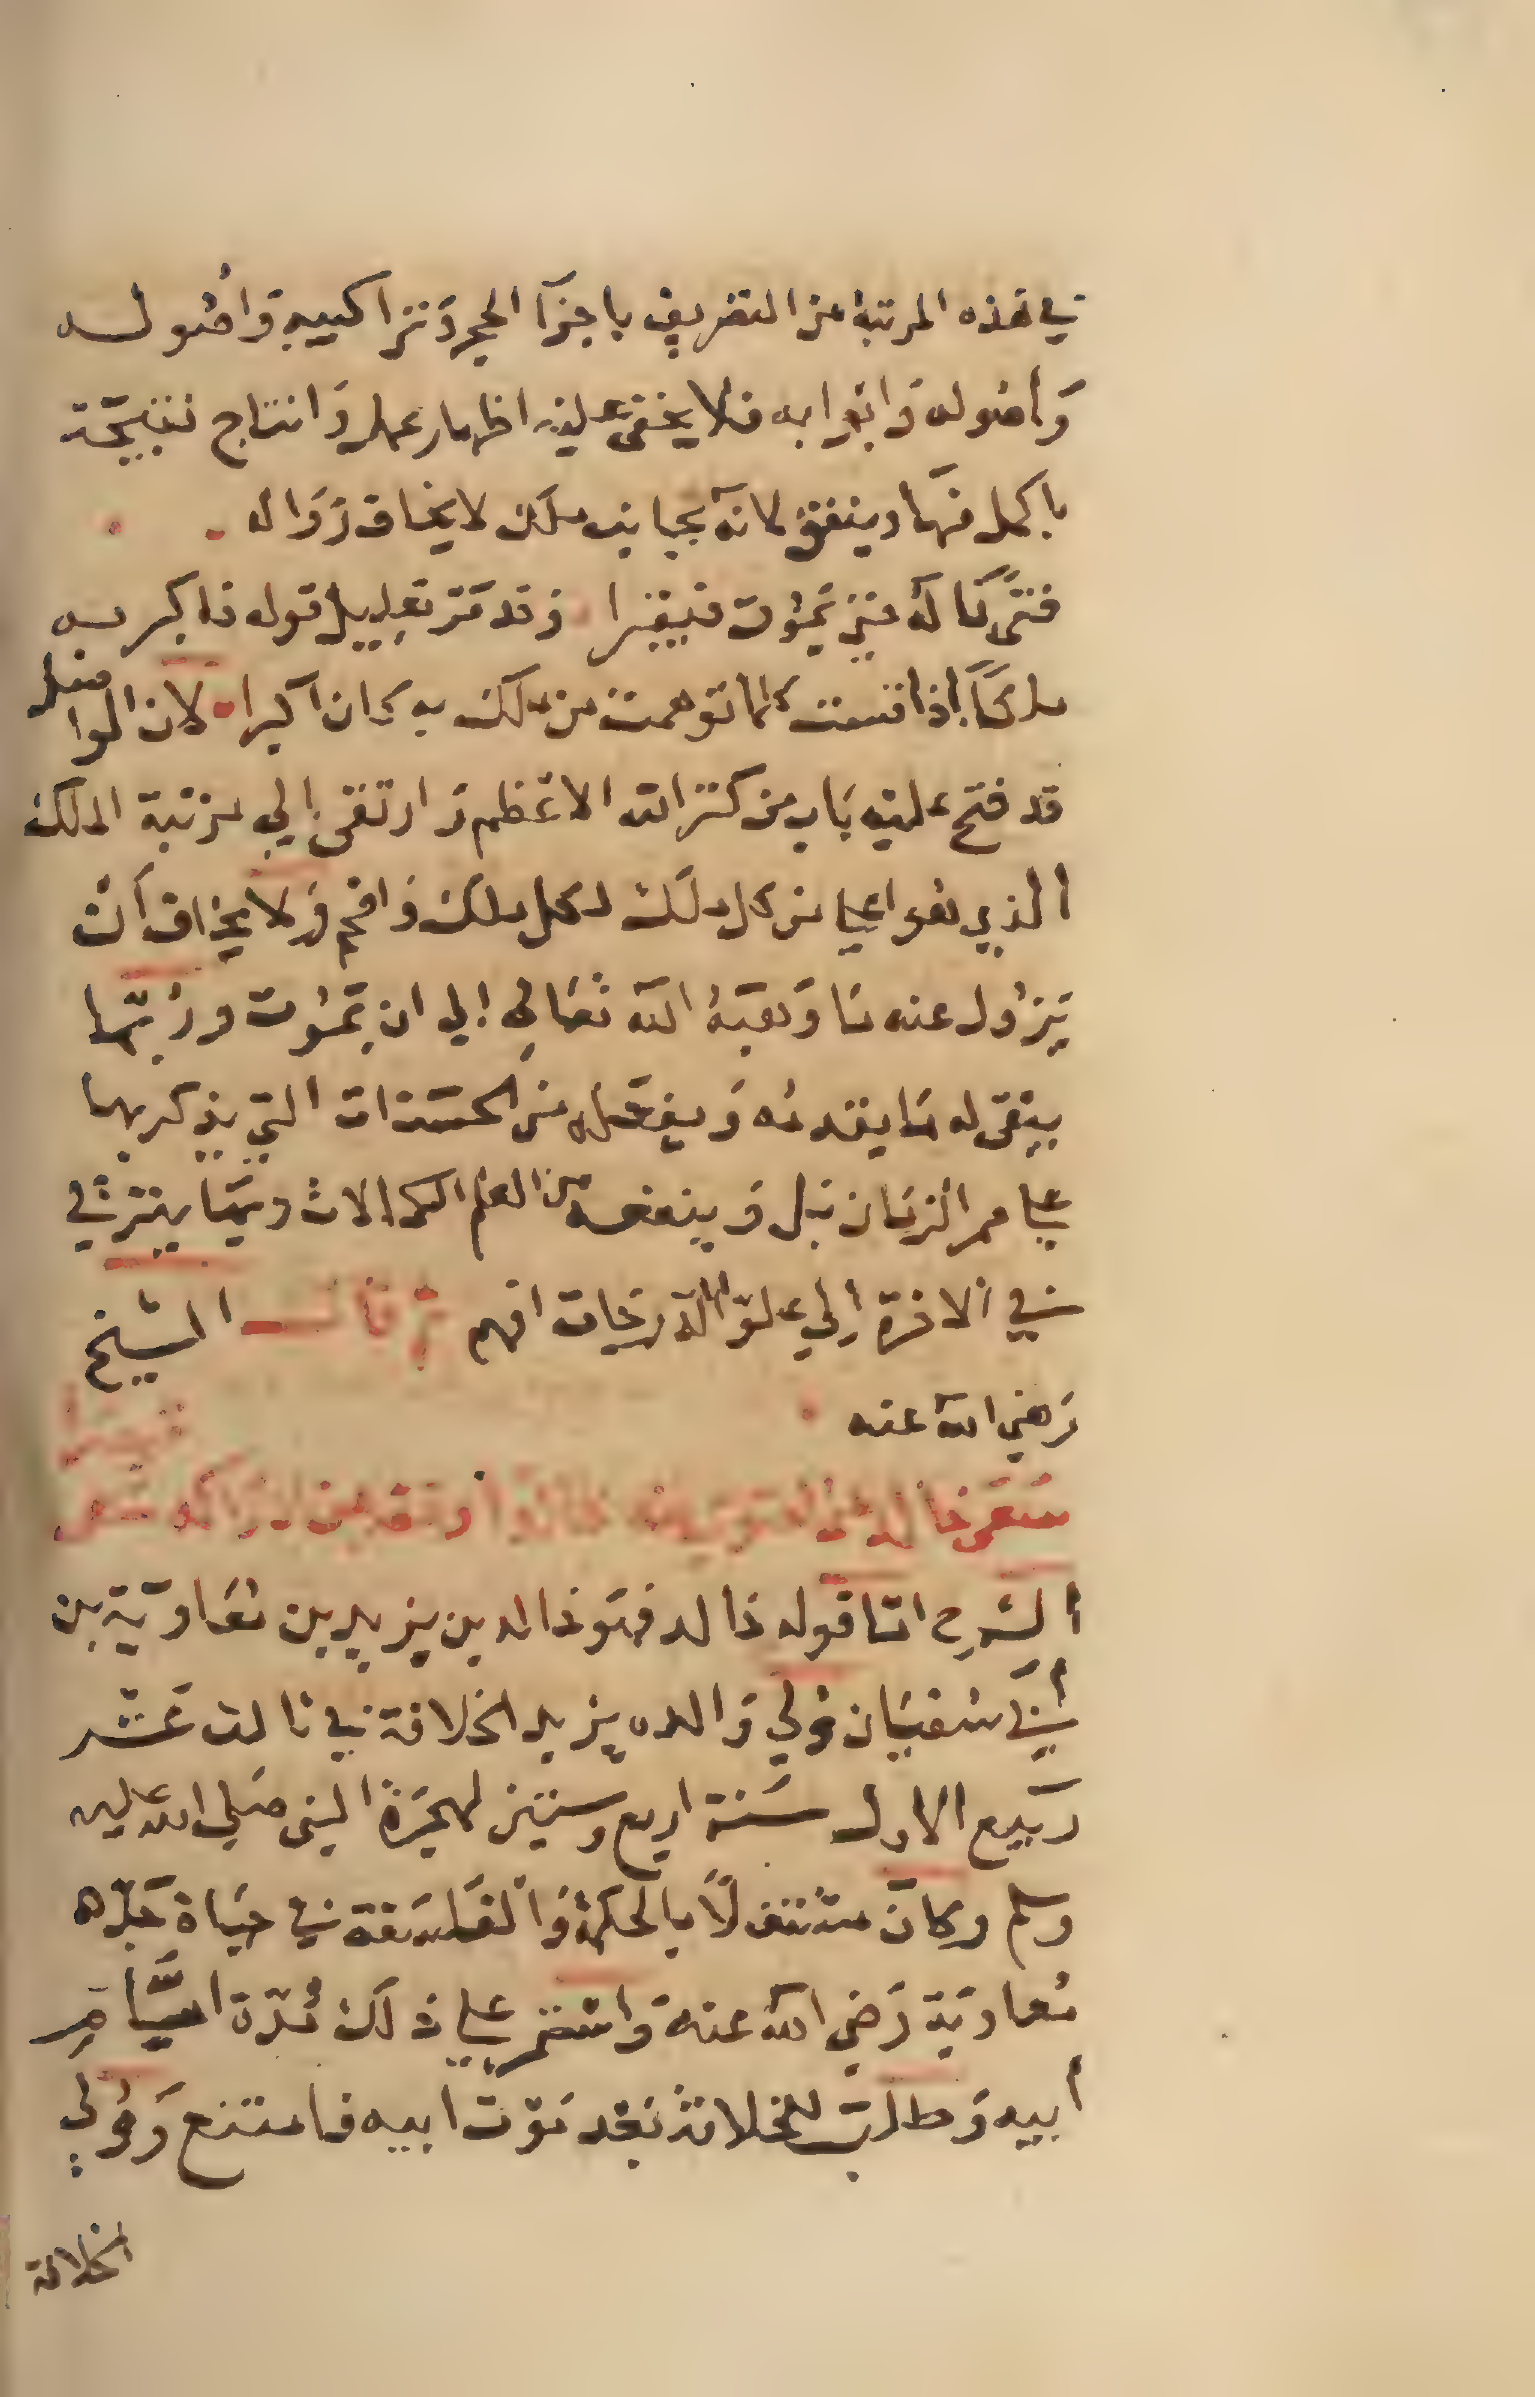 في هذه المرتبة من التصريف باجزآ الحجر وتراكيبه واصوله
وأصوله وابوابه فلا يخفى عليه اظهار عمله وانتاج نتيجة
باكمل منها وينفق لانه بجانب ملك لا يخاف زواله
فتًى ماله مِن يموت وقد مر تعليل قوله فاكبر به
ملكاً اذا قست كلما توهمت من ملك به كان اكبرا لان الواصل
قد فتح عليه باب من كنز الله الاعظم وارتقى الي مرتبة الملك
الذي هو اعلي من كل ملك لكل ملك وافهم ولا يخاف أن
يزول عنه ما وهبهُ الله تعالي الي ان يموت وربّما
يبقى له ما يقدمه ويفعله من الحسنات التي يذكر بها
علي ممر الزمان بل وينفعه من العلم الكمالات وبما يترقي
في الاخرة الي علوّ الدرجات افهم ثم قال الشيخ
رضي الله عنه
سعى خالد
ألشرح امّا قوله خالد فهو خالد بن يزيد بن معاوية بن
أبي سفيان ولي والده يزيد الخلافة في ثالث عشر
ربيع الاول سنة اربع وستين لهجرة النبي صلي الله عليه
وسلم وكان مشتغلاً بالحكمة والفلسفة في حياة جدّه
معاوية رضي الله عنه واستمر علي ذلك مدّة ايّام
أبيه وطلب للخلافة بعد موت ابيه فامتنع وولي
الخلافة